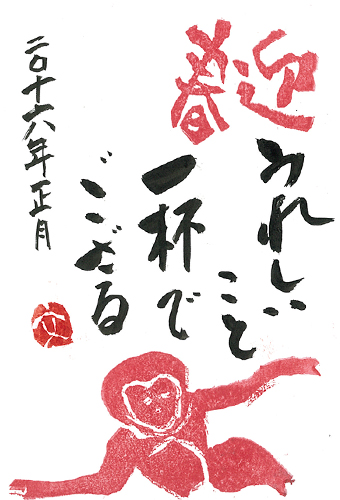 迎春
うれしいこと
一杯で
ござる
二〇十六年正月